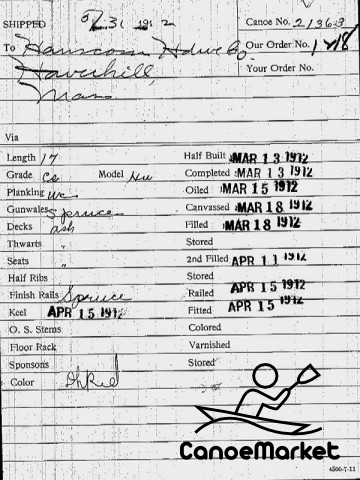 SHIPPED 31 1912 Canoe No. 21363
To Hanscom Hdwe Co. Our Order No.
Haverhill, Your Order No.
Mass
Via
Length 17 Half Built MAR 13 1912
Grade CS Model Hu Completed MAR 13 1912
Planking WC Oiled MAR 15 1912
Gunwales Spruce Canvassed MAR 18 1912
Decks ash Filled MAR 18 1912
Thwarts " Stored
Seats " 2nd Filled APR 11 1912
Half Ribs Stored
Finish Rails Spruce Railed APR 15 1912
Keel APR 15 1912 Fitted APR 15 1912
O. S. Stems Colored
Floor Rack Varnished
Sponsons Stored
Color Dk Red
CanoeMarket
4500-7-11